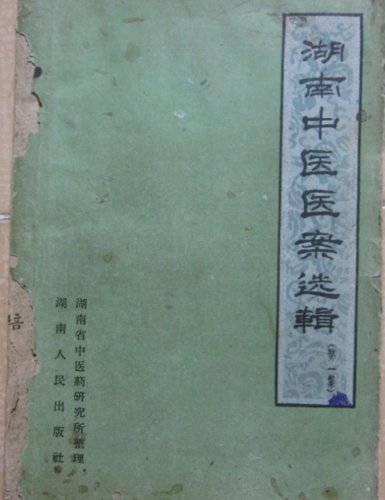 湖南中医医案选辑
(第一集)
湖南省中医药研究所整理
湖南人民出版社
培